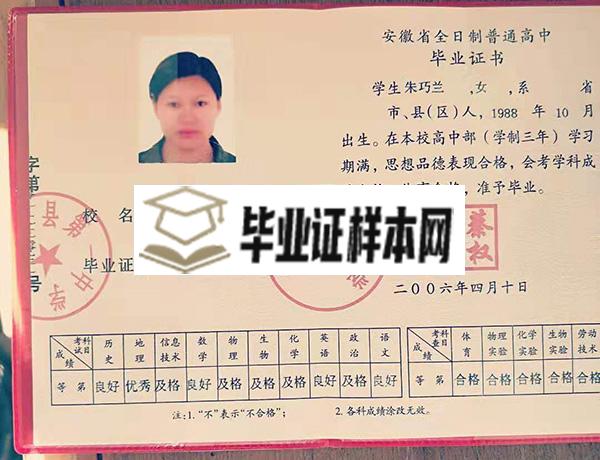 安徽省全日制普通高中
毕业证书
学生朱巧兰 ,女 ,系 省
市、县(区)人，1988 年 10 月
出生。在本校高中部（学制三年）学习
期满，思想品德表现合格，会考学科成
准予毕业。
字第
号
县第一中学
校 名
毕业证
毕业证样本网
二〇〇六年四月十日
考试科目 历史 地理 信息技术 数学 物理 生物 化学 英语 政治 语文
成绩
等 第 良好 优秀 及格 良好 及格 及格 及格 良好 及格 良好
考查科目 体育 物理实验 化学实验 生物实验 劳动技术
成绩
等 第 合格 合格 合格 合格 合格
注:1.“不”表示“不合格”； 2.各科成绩涂改无效。